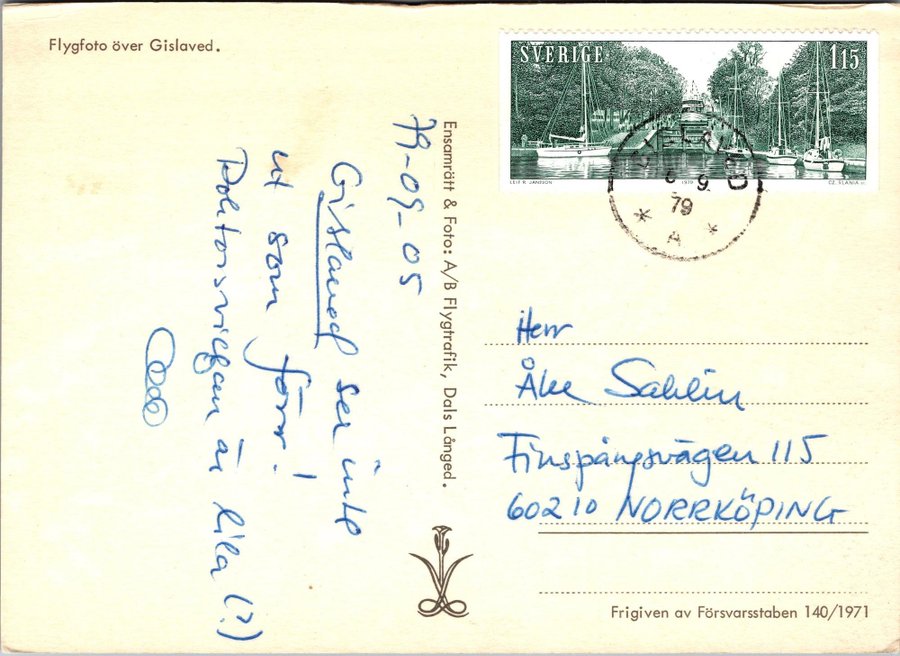 Flygfoto över Gislaved.
SVERIGE 1.15
LEIF R. JANSSON 1979 CZ. SLANIA sc.
9
79
* A *
79-09-05
Gislaved ser inte
ut som förr!
är lila (?)
Ensamrätt & Foto: A/B Flygtrafik, Dals Långed.
Herr
Åke Sahlin
Finspångsvägen 115
60210 NORRKÖPING
Frigiven av Försvarsstaben 140/1971